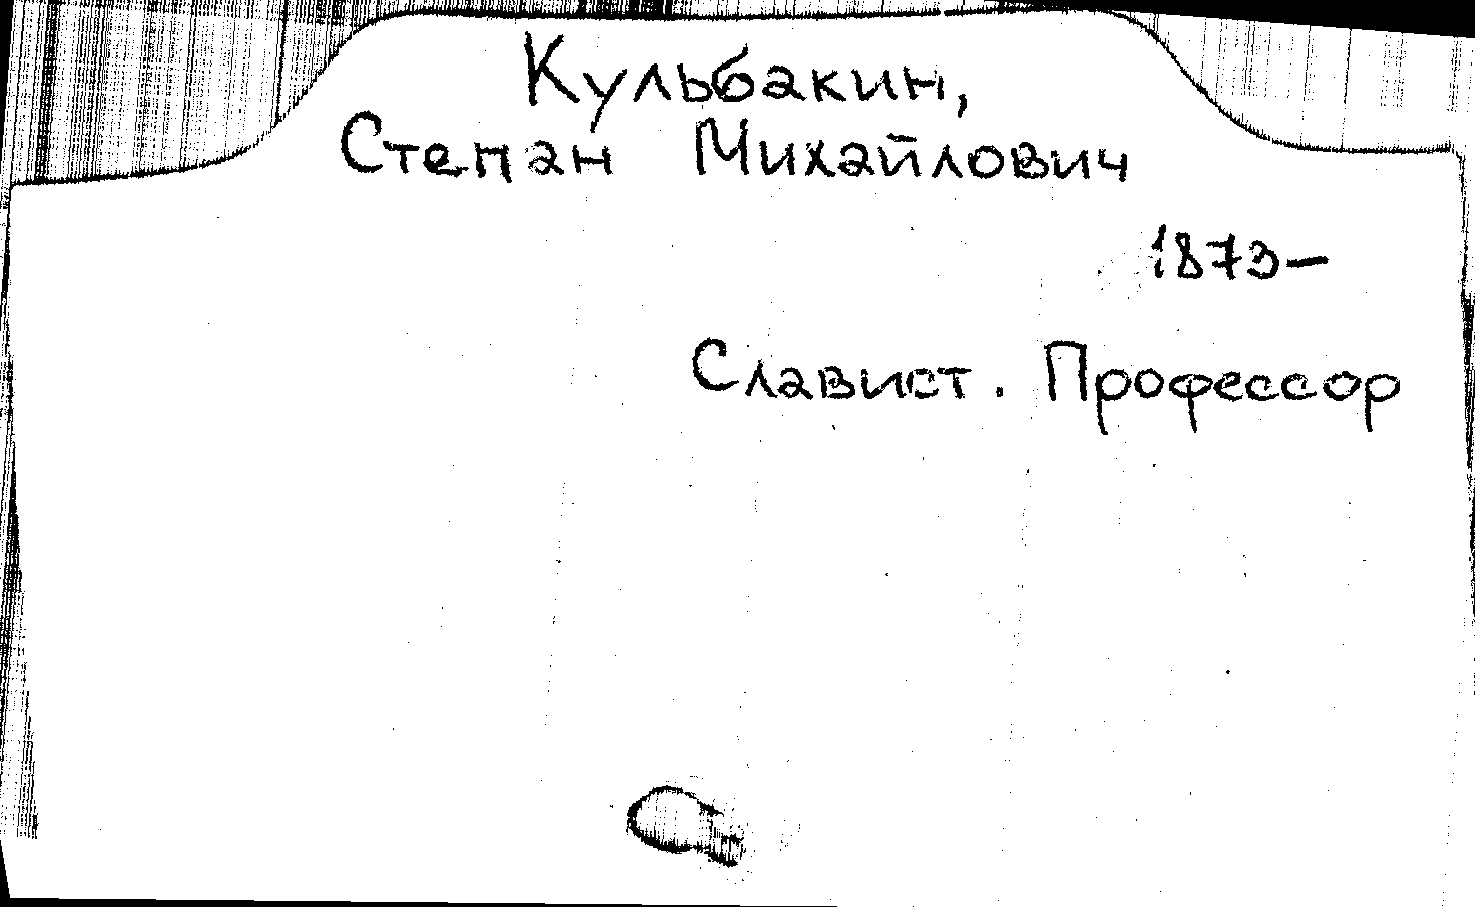 Кульбакин,
Степан Михайлович
1873—
Славист. Профессор